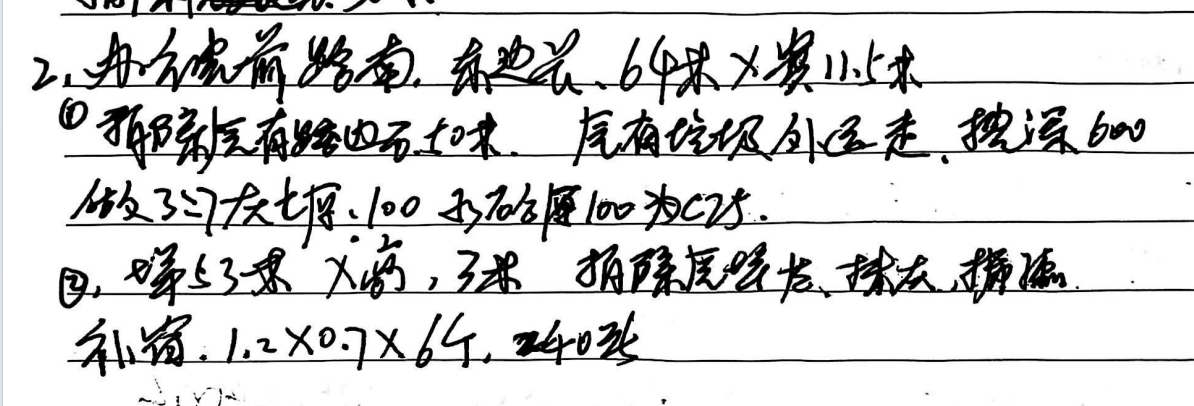 2、办公室前路南、东边长、64米×宽11.5米
① 拆除原有路边石50米、原有垃圾外运走、挖深600
做3:7灰土厚、100 水石厚100为C25.
②、墙53米×高、3米 拆除原墙皮、抹灰、
补窗.1.2×0.7×6个、240砖